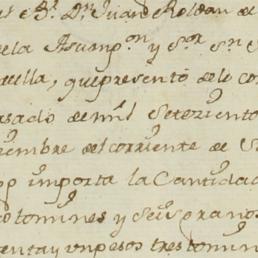 es el Sr. Dn. Juan Roldan de
de la Asump.on y Sor. Sn.
uella, que presentò de lo co
asado de mil setezientos
iembre del corriente de S
importa la Cantidad
tomines y seis granos
enta y un pesos tres tomin